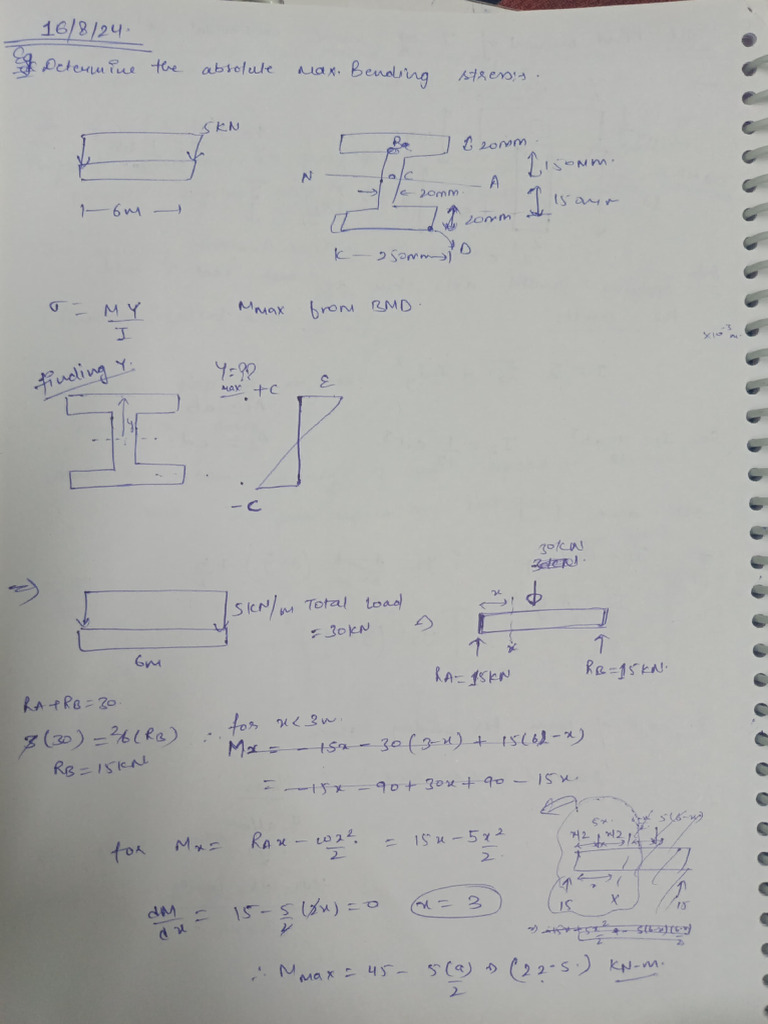 16/8/24.
Eg Determine the absolute Max. Bending stress.
5KN
6m
B
20mm.
150mm.
N
C
A
20mm.
150mm
20mm
250mm
D
σ = MY/I Mmax from BMD.
×10⁻³ m.
finding Y.
Y=??
max
+C
E
y
-C
⇒ 5KN/m Total load
= 30KN
6m
30KN
x
x
RA=15KN
RB=15KN.
RA+RB=30.
3(30) = 6(RB)
RB=15KN
∴ for x<3m.
Mx = -15x - 30(3-x) + 15(6-x)
= -15x - 90 + 30x + 90 - 15x.
for Mx = RAx - ωx²/2 = 15x - 5x²/2
5x
x/2 x/2
5(6-x)
15
X
15
dM/dx = 15 - 5/2(2x) = 0 x = 3
∴ Mmax = 45 - 5(9)/2 ⇒ (22.5.) KN-m.